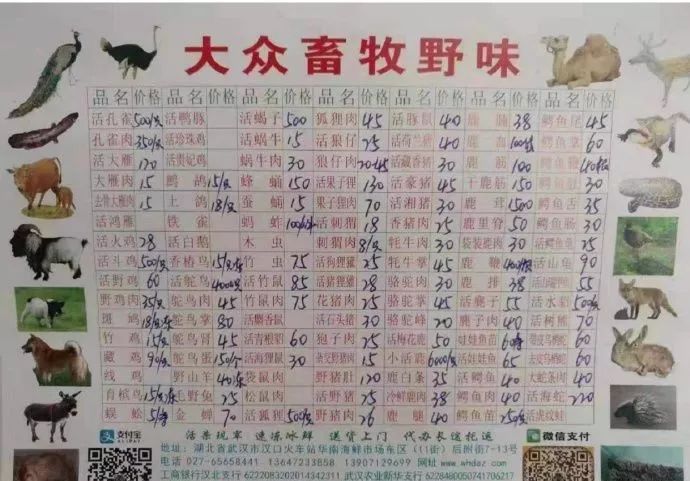 大众畜牧野味
品名 价格 品名 价格 品名 价格 品名 价格 品名 价格 品名 价格 品名 价格
活孔雀 500/支 活鸭豚 活蝎子 500 狐狸肉 45 活豚鼠 40 鹿 38 鳄鱼尾 45
孔雀肉 350/支 活珍珠鸡 活蜗牛 15 活狼仔 25 活荷兰猪 40 鹿血 鳄鱼掌 60
活大雁 120 活贵妃鸡 蜗牛肉 30 狼仔肉 活藏香猪 40 鹿筋 100 鳄鱼
大雁肉 15 鹧鸪 15/支 蜂蛹 150 活果子狸 130 活豪猪 45 干鹿筋 150 鳄鱼肚 30
去骨大雁肉 15 土鸽 18/支 蚕蛹 15 果子狸肉 70 活湘猪 30 鹿茸 1500 鳄鱼舌 35
活鸿雁 铁雀 蚂蚱 活刺猬 18 香猪肉 25 鹿里脊 50 鳄鱼肠 30
活火鸡 28 活白鹅 木虫 刺猬肉 8/支 牦牛肉 30 袋装鹿肉 30 活鳄鱼 25
活斗鸡 500/支 香椿鸟 竹虫 75 活狗獾 25 牦牛掌 45 鹿鞭 活山龟 90
活野鸡 60 活鸵鸟 活竹鼠 85 活猪獾 28 骆驼肉 25 鹿排 38 55
野鸡肉 35/支 鸵鸟肉 45 竹鼠肉 75 花猪肉 25 骆驼掌 45 活麂子 55 活水貂 500/支
斑鸠 18/支 鸵鸟掌 80 活麝香鼠 活石头猪 30 骆驼峰 20 麂子肉 40 活树熊 70
竹鸡 15/支 鸵鸟肾 45 活青根貂 60 狍子肉 25 活梅花鹿 50 娃娃鱼苗 60
藏鸡 90/支 鸵鸟蛋 150/个 活海狸鼠 30 杂交野猪肉 15 小活鹿 6000/支 活娃娃鱼 65 70
线鸟 野山羊 40 袋鼠肉 野猪肚 120 鹿白条 35 活鳄鱼 40 大蛇条肉 40
育槟鸟 毛野兔 25 松鼠肉 活野猪 25 冷鲜鹿肉 38 鳄鱼肉 40 活海蛇 220
蜈蚣 5/条 金蝉 70 活狐狸 500/支 野猪肉 26 鹿腿 40 鳄鱼苗 250/支 活虎纹蛙
支付宝 活杀现宰 速冻冰鲜 送货上门 代办长途托运 微信支付
地址：湖北省武汉市汉口火车站华南海鲜市场东区(11街)后附街7-13号
电话：027-65658441 13647233858 13907129699 www.whdaz.com
工商银行汉北支行 6222083202014342311 武汉农业新华支行 6228480050741706217